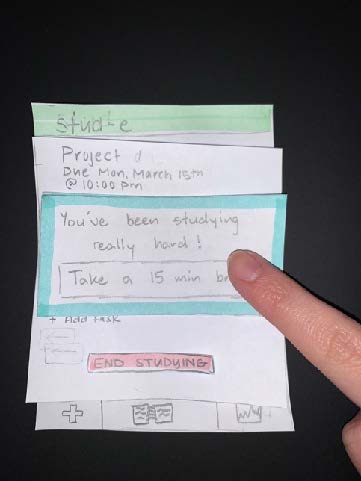 Project
Due Mon, March 15th
@ 10:00 pm
You've been studying
really hard!
Take a 15 min
+ Add task
END STUDYING